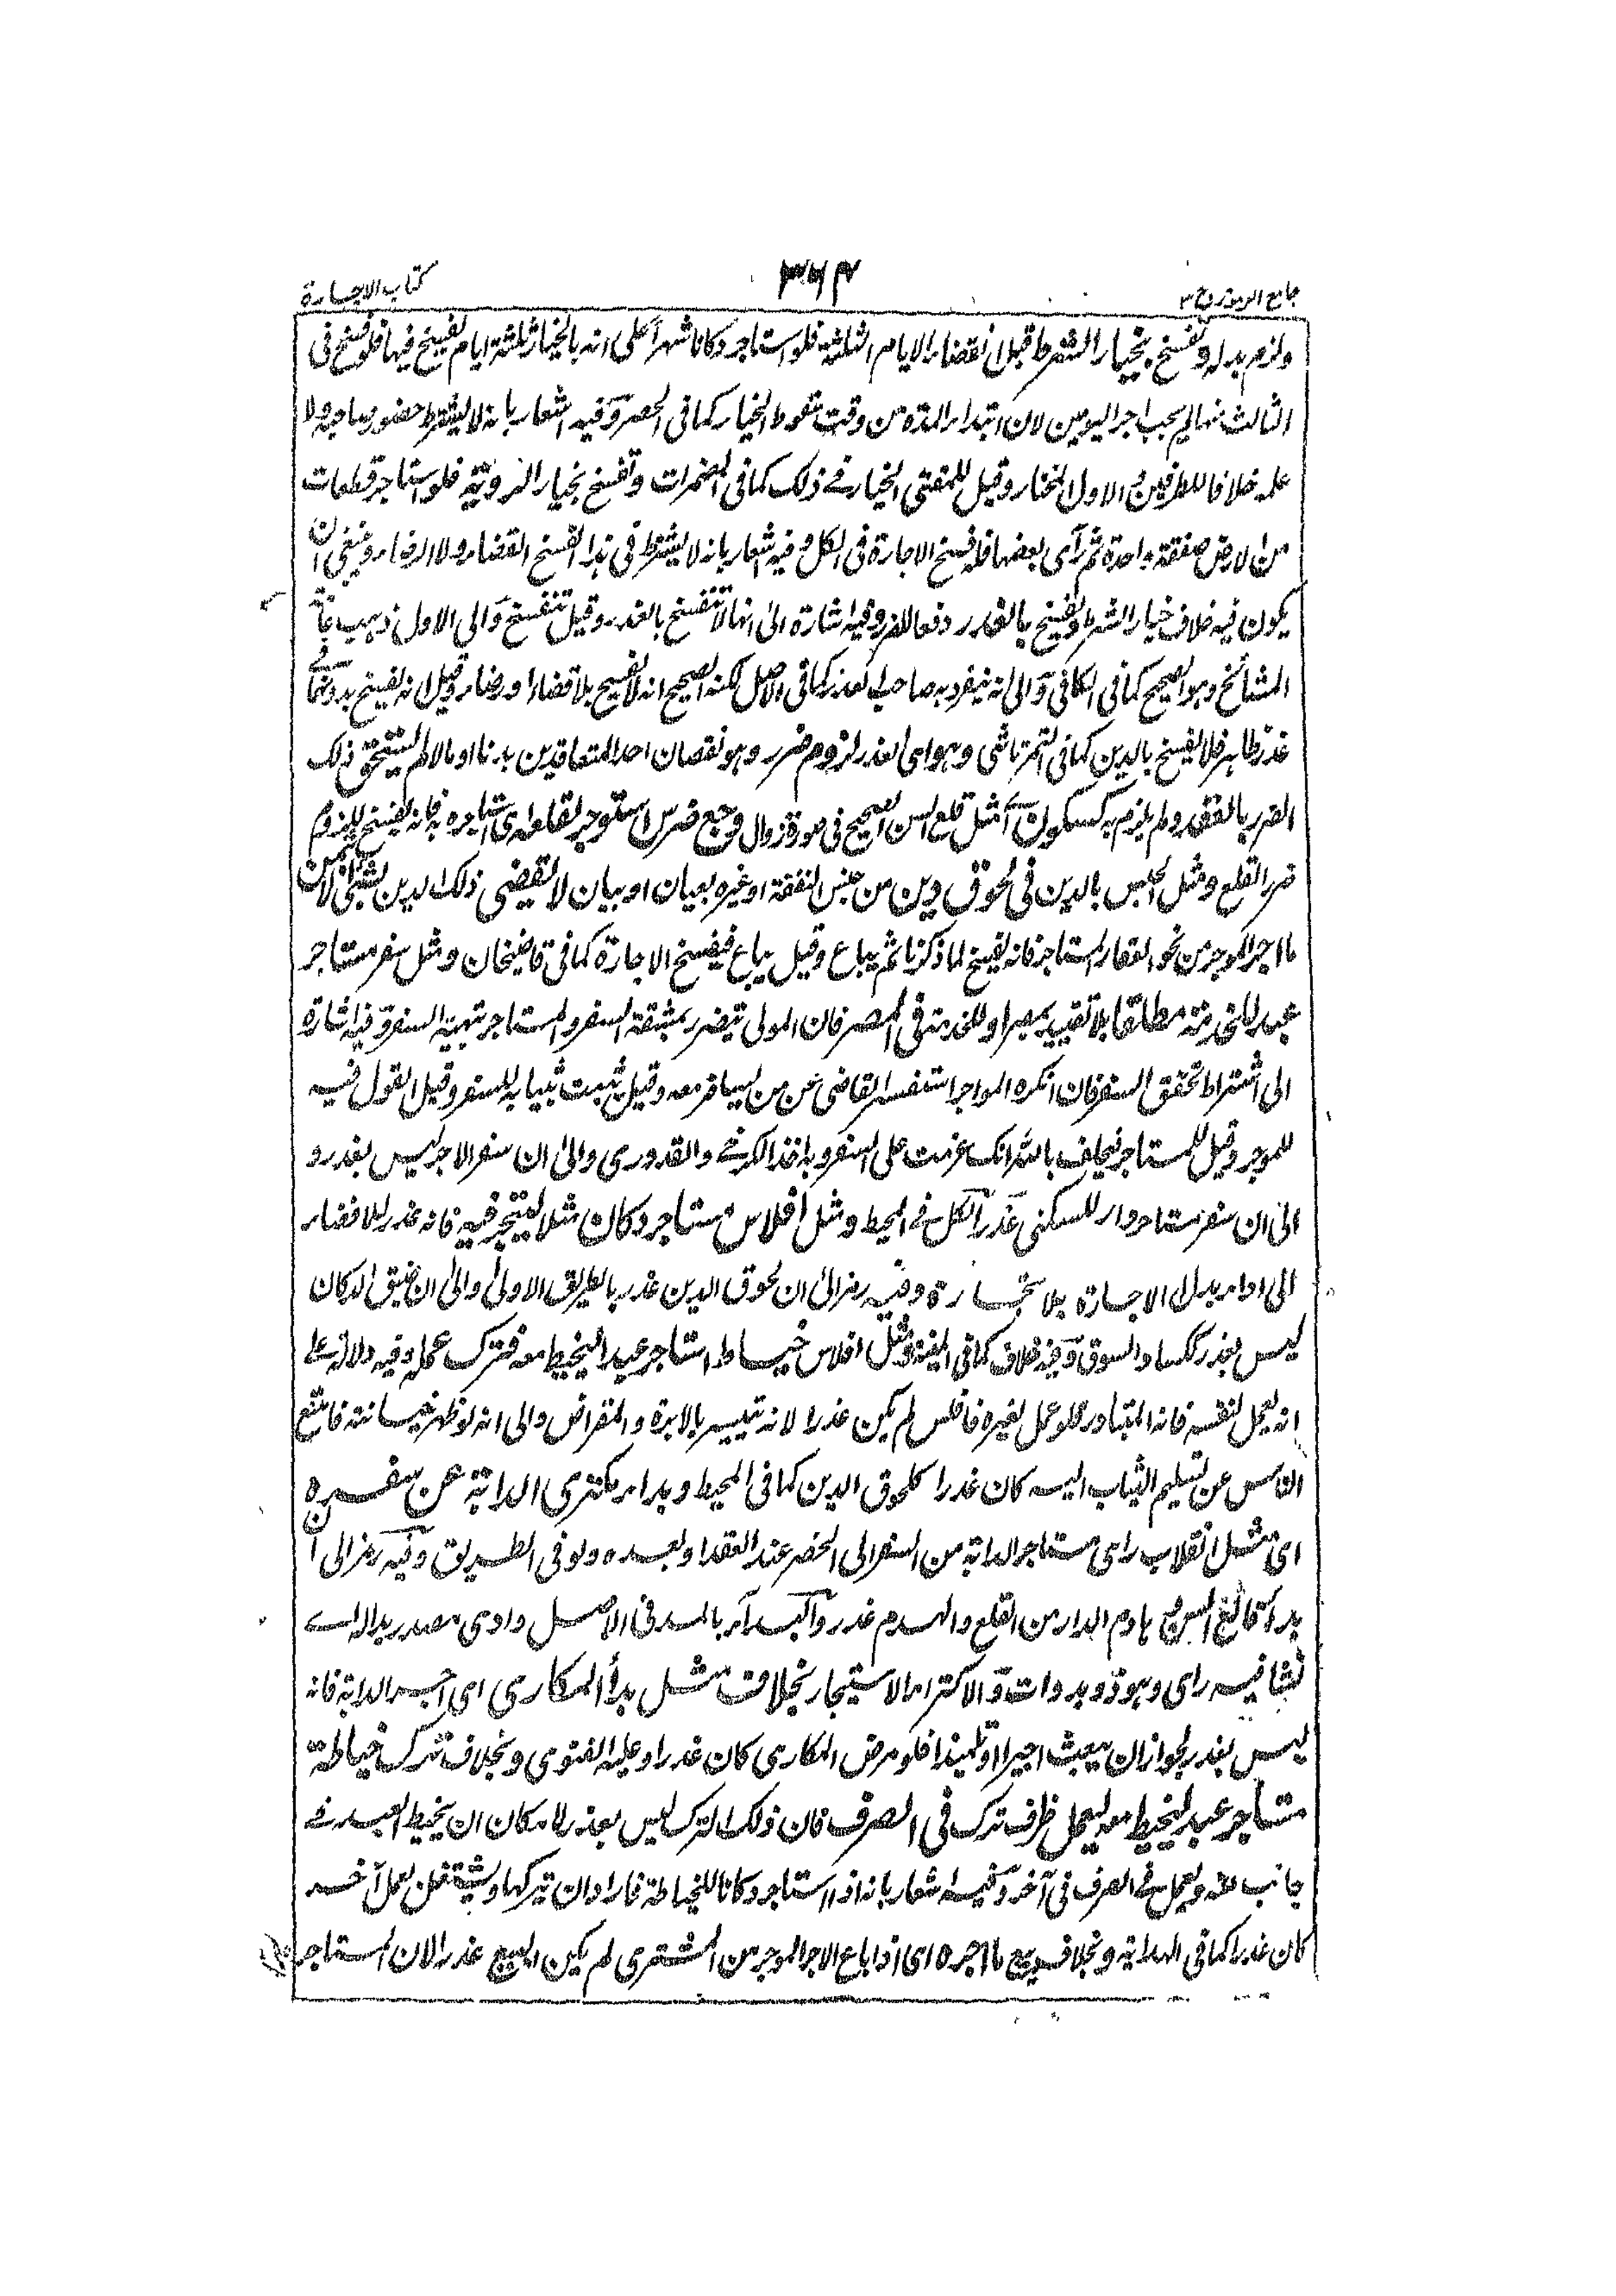 جامع الرموز ج ٣
٣٦٤
كتاب الاجارة
ولزم بدله وتفسخ بخيار الشرط قبل انقضاء الايام الثلثة فلو استاجر دكانا شهرا على انه بالخيار ثلثة ايام يفسخ فيها فلو فسخ فى
الثالث منها لم يجب اجر اليومين لان ابتداء المدة من وقت سقوط الخيار كما فى الحصر وفيه اشعار بانه لا يشترط حضور صاحبه ولا
علمه خلافا للطرفين والاول المختار وقيل للمفتى الخيار فى ذلك كما فى المضمرات وتفسخ بخيار الروية فلو استاجر قطعات
من الارض صفقة واحدة ثم رأى بعضها فله فسخ الاجارة فى الكل وفيه اشعار بانه لا يشترط فى هذا الفسخ القضاء ولا الرضاء وينبغى ان
يكون فيه خلاف خيار الشرط وتفسخ بالعذر دفعا للضرر وفيه اشارة الى انها لا تنفسخ بالعذر وقيل تنفسخ والى الاول ذهب عامة
المشائخ وهو الصحيح كما فى الكافى والى انه ينفرد به صاحب العذر كما فى الاصل لكنه الصحيح انه لا تفسخ بلا قضاء او رضاء وقيل انه يفسخ بدونهما فى
عذر ظاهر فلا يفسخ بالدين كما فى التمرتاشى وهو اى العذر لزوم ضرر وهو نقصان احد المتعاقدين بدنا او مالا لم يستحق ذلك
الضرر بالعقد ولم يلزم به كسكون اى مثل قلع السن الصحيح فى صورة زوال وجع ضرس استوجر لقلعه اى استاجره به فانه يفسخ للزوم
ضرر القلع ومثل الحبس بالدين فى لحوق دين من جنس النفقة او غيره بعيان او بيان لا يقضى ذلك الدين بشئ الا من ثمن
ما اجر الموجر من نحو العقار المستاجر فانه يفسخ لما ذكرنا ثم يباع وقيل يباع فيفسخ الاجارة كما فى قاضيخان ومثل سفر مستاجر
عبد للخدمة مطلقا بلا تقييد بمصر او للخدمة فى المصر فان المولى يتضرر بمشقة السفر والمستاجر بتهية السفر وفيه اشارة
الى اشتراط تحقق السفر فان انكره المواجر استفسر القاضى عن من يسافر معه وقيل يثبت بثيابه للسفر وقيل القول فيه
للموجر وقيل للمستاجر فيحلف بالله انك عزمت على السفر وبه اخذ الكرخى والقدورى والى ان سفر الاجر ليس بعذر و
الى ان سفر مستاجر دار للسكنى عذر الكل فى المحيط ومثل افلاس مستاجر دكان مثلا ليتجر فيه فانه عذر للافضاء
الى اداء بدل الاجارة بلا تجارة وفيه رمز الى ان لحوق الدين عذر بالطريق الاولى والى ان ضيق الدكان
ليس بعذر ككساد السوق وفيه خلاف كما فى المنية ومثل افلاس خياط استاجر عبدا ليخيط معه فترك عمله وفيه دلالة على
انه يعمل لنفسه فانه المتبادر فلو عمل لغيره فافلس لم يكن عذرا لانه تيسير بالابرة والمقراض والى انه لو ظهر خيانته فامتنع
الناس عن تسليم الثياب اليه كان عذرا كلحوق الدين كما فى المحيط وبداء مكترى الدابة عن سفره
اى مثل انقلاب راى مستاجر الدابة من السفر الى الحضر عند العقد او بعده ولو فى الطريق وفيه رمز الى ان
بداء قالع السن وهادم الدار من القلع والهدم عذر والبداء بالمد فى الاصل وادى مصدر بدا له اى
نشأ فيه راى وهو ذو بدوات والاكتراء الاستيجار بخلاف مثل بدأ المكارى اى اجر الدابة فانه
ليس بعذر لجواز ان يبعث اجيرا او تلميذا فلو مرض المكارى كان عذرا وعليه الفتوى وبخلاف ترك خياطة
مستاجر عبد ليخيط معه ليعمل ظرف ترك فى الصرف فان ذلك الترك ليس بعذر لامكان ان يخيط العبد فى
جانب منه ويعمل فى الصرف فى آخر وفيه اشعار بانه اذا استاجر دكانا للخياطة فاراد ان يتركها ويشتغل بعمل آخر
كان عذرا كما فى الهداية وبخلاف بيع ما اجره اى اذا باع الاجر الموجر من المشترى لم يكن البيع عذرا لان المستاجر